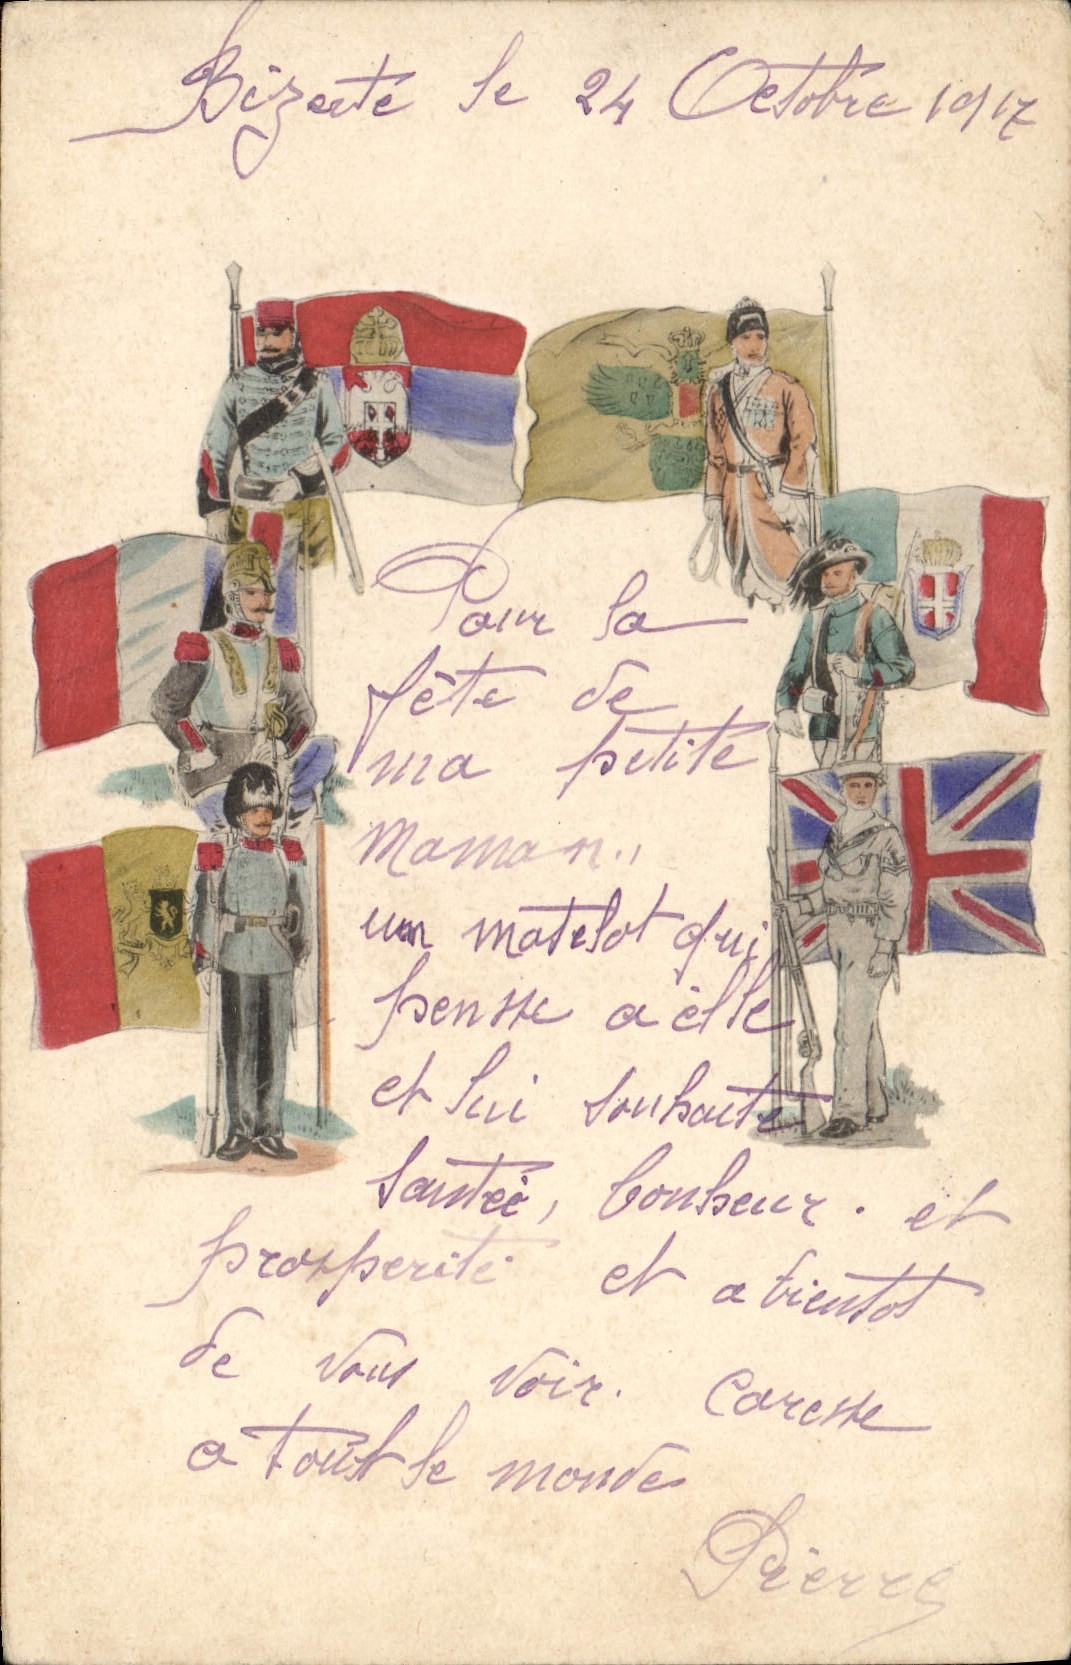 Bizerte le 24 Octobre 1917
Pour la
fête de
ma petite
Maman.,
un matelot qui
pensse a èlle
et lui souhaite
santéè, bonheur. et
prosperité et a bientot
de vous voir. Caresse
a tout le monde
Pierre